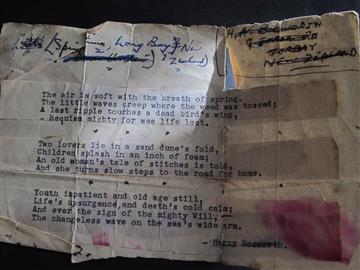 (Spring Long Bay, New
Zealand)
H.A. BOSWORTH
TORBAY
NEW ZEALAND
The air is soft with the breath of spring.
The little waves creep where the weed was tossed;
A last ripple touches a dead bird's wing,
- Requiem mighty for wee life lost.
Two lovers lie in a sand dune's fold,
Children splash in an inch of foam;
An old woman's tale of stitches is told,
And she turns slow steps to the road for home.
Youth inpatient and old age still,
Life's upsurgence, and death's cold calm;
And ever the sign of the mighty Will,
The changeless wave on the sea's wide arm.
- Harry Bosworth.